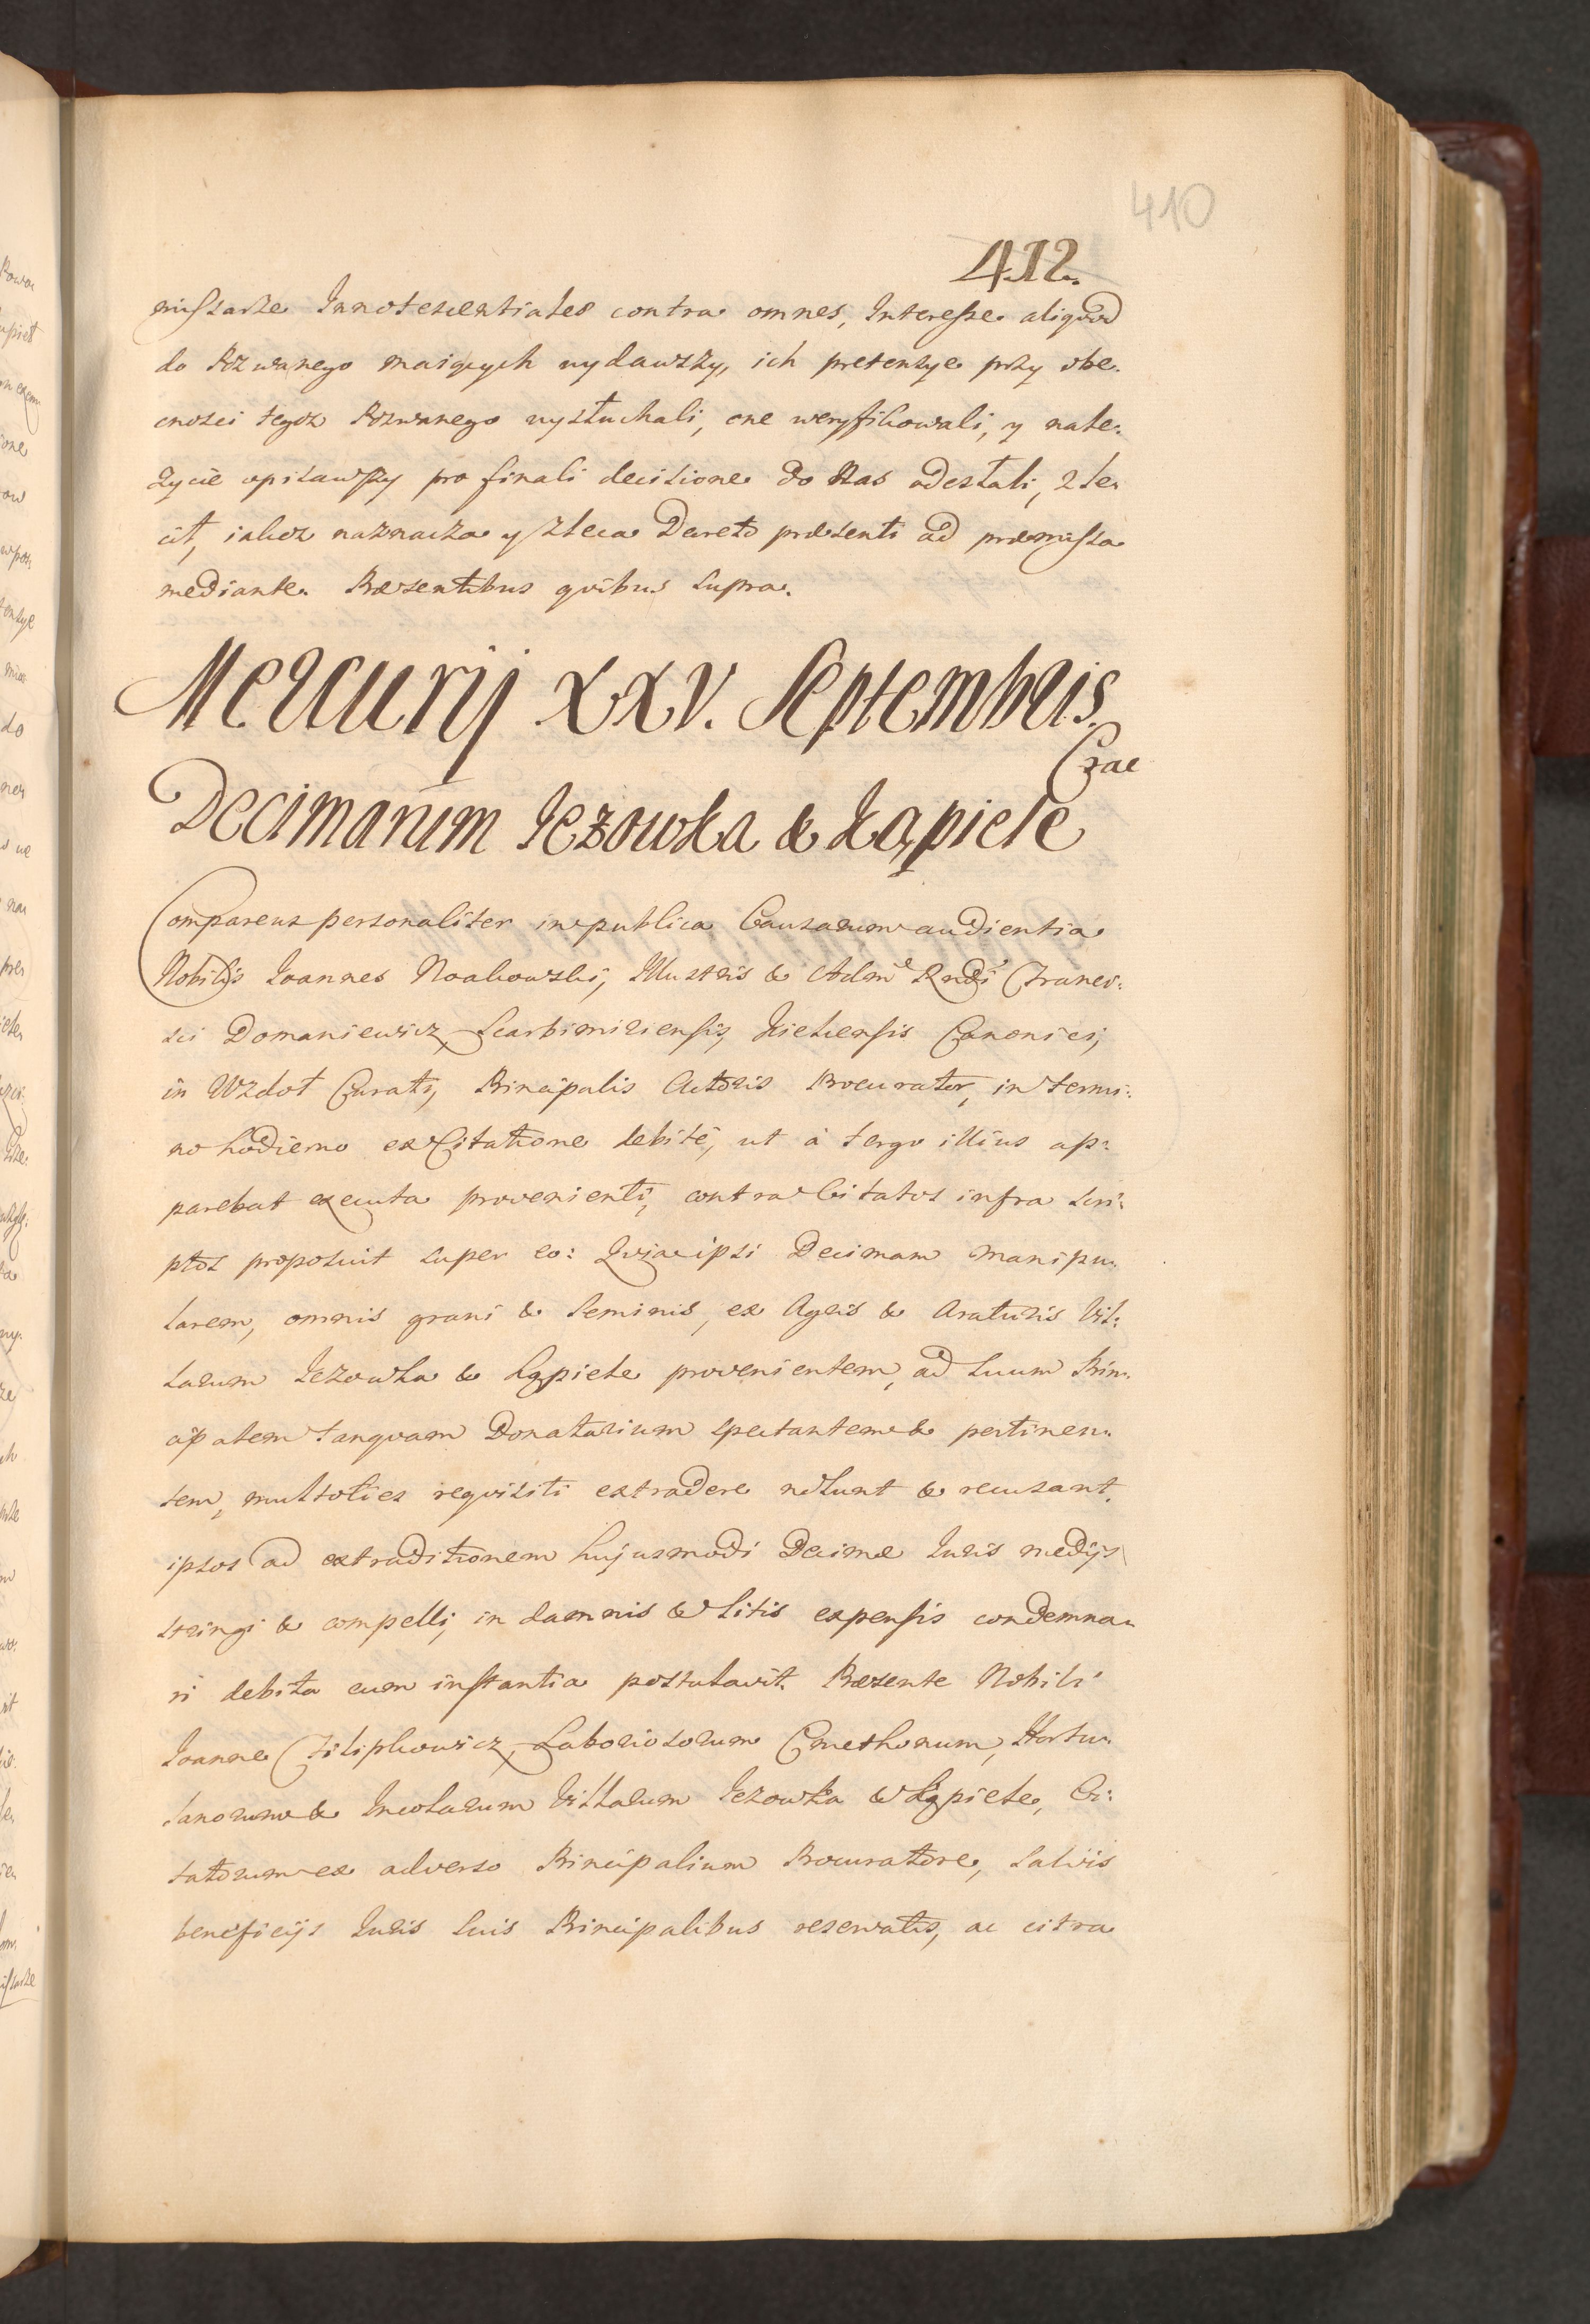 410
412.
missarze Innotescentiales contra omnes, Interesse aliquod
do Pozwanego maiących wydawszy, ich pretensye przy obe:
cności tegoz Pozwanego wysłuchali, one weryfikowali, y nale:
zycie opisawszy pro finali decisione do Nas odesłali, zle:
cił, iakoz naznacza y zleca Decreto præsenti ad præmissa
mediante. Præsentibus quibus supra.
Mercurij XXV. Septembris.
Czae
Decimarum Iezowka & Łąpiele
Comparens personaliter in publica Causarum audientia
Nobilis Ioannes Noakowski, Illustris & Adm Rndi Franci:
sci Domaniewicz, Scarbimiriensis, Kielcensis Canonici,
in Wzdoł Curati, Principalis Actoris Procurator, in termi:
no hodierno ex Citatione debitè, ut à tergo illius ap:
parebat executa provenienti, contra Citatos infra scri:
ptos proposuit super eo: Quia ipsi Decimam manipu:
larem, omnis grani & seminis, ex Agris & Araturis Vil:
larum Iezowka & Łąpiele provenientem, ad suum Prin:
cipalem tanquam Donatarium spectantem & pertinen:
tem, multoties requisiti extradere nolunt & recusant,
ipsos ad extraditionem hujusmodi Decimæ Iuris medijs
stringi & compelli, in damnis & litis expensis condemna:
ri debita cum instantia postulavit. Præsente Nobili
Ioanne Filipkowicz, Laboriosorum Cmethonum, Hortu:
lanorum & Incolarum Villarum Iezowka & Łąpiele, Ci:
tatorum ex adverso Principalium Procuratore, salvis
beneficijs Iuris suis Principalibus reservatis, ac citra